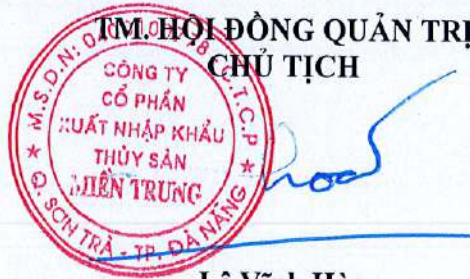 TM. HỘI ĐỒNG QUẢN TRỊ
CHỦ TỊCH
M.S.D.N:
C.T.C.P
CÔNG TY
CỔ PHẦN
XUẤT NHẬP KHẨU
THỦY SẢN
MIỀN TRUNG
Q. SƠN TRÀ - TP. ĐÀ NẴNG